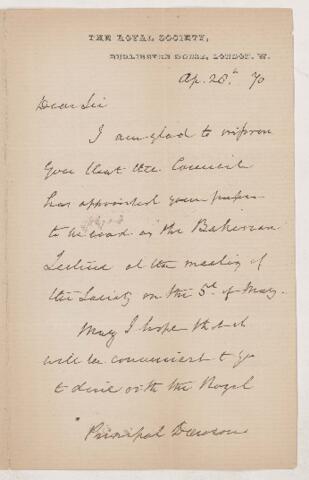 THE ROYAL SOCIETY,
BURLINGTON HOUSE, LONDON. W.
Ap. 28. 70
Dear Sir
I am glad to inform
you that the Council
has appointed your paper
to be read as the Bakerian
Lecture at the meeting of
the Society on the 5th of May.
May I hope that it
will be convenient to you
to dine with the Royal
Principal Dawson